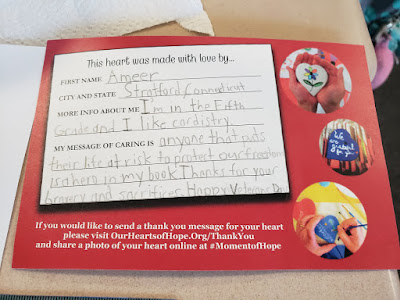 This heart was made with love by...
FIRST NAME Ameer
CITY AND STATE Stratford, Connecticut
MORE INFO ABOUT ME I'm in the Fifth
Grade and I like cardistry
MY MESSAGE OF CARING IS anyone that puts
their life at risk to protect our freedom
is a hero in my book Thanks for your
bravery and sacrifices Happy Veterans Day
We are
grateful
for you
If you would like to send a thank you message for your heart
please visit OurHeartsofHope.Org/ThankYou
and share a photo of your heart online at #MomentofHope